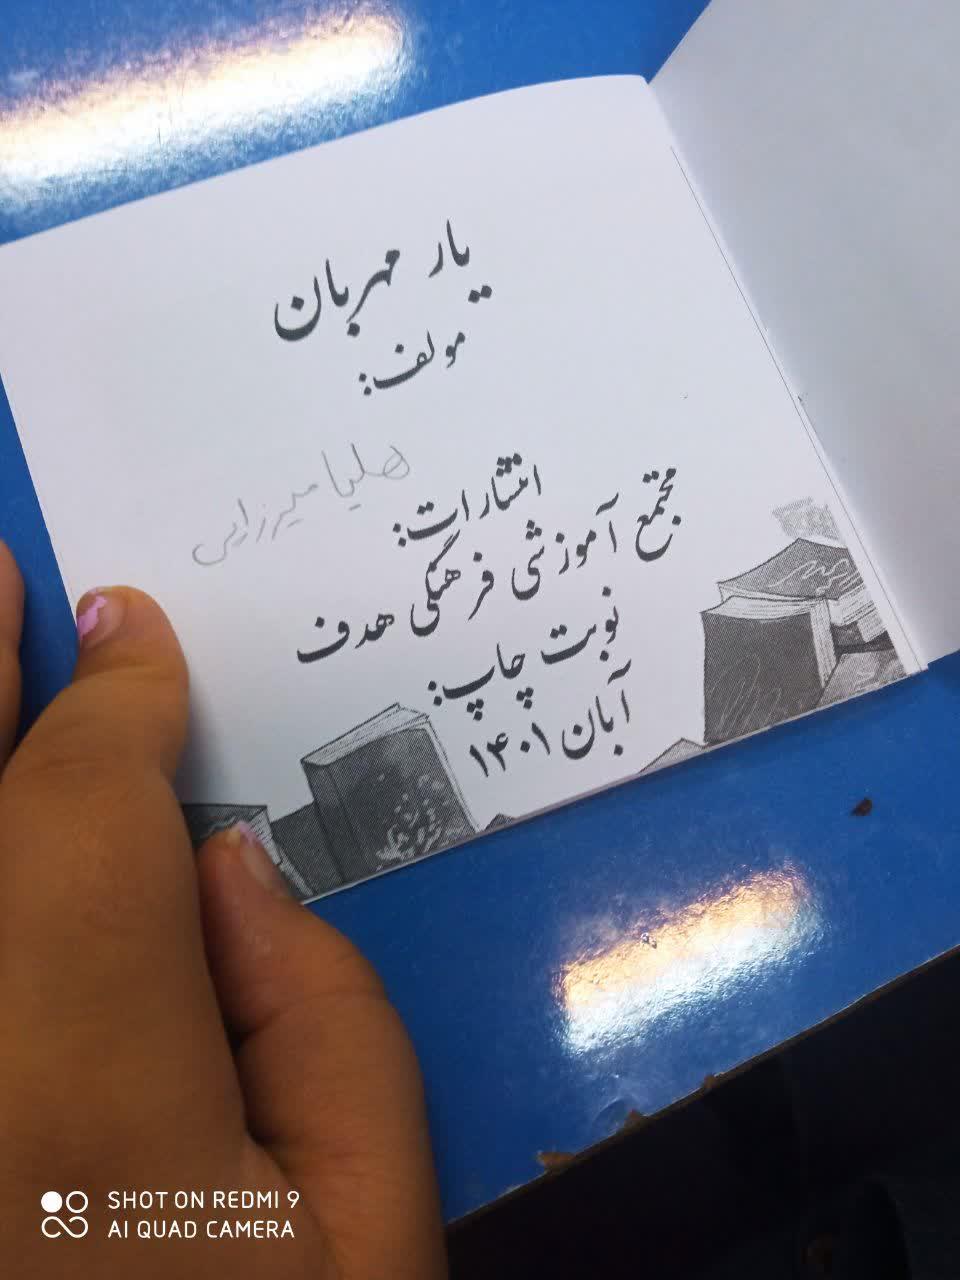 یار مهربان
مولف:
هلیا میرزایی
انتشارات:
مجتمع آموزشی فرهنگی هدف
نوبت چاپ:
آبان ۱۴۰۱
SHOT ON REDMI 9
AI QUAD CAMERA